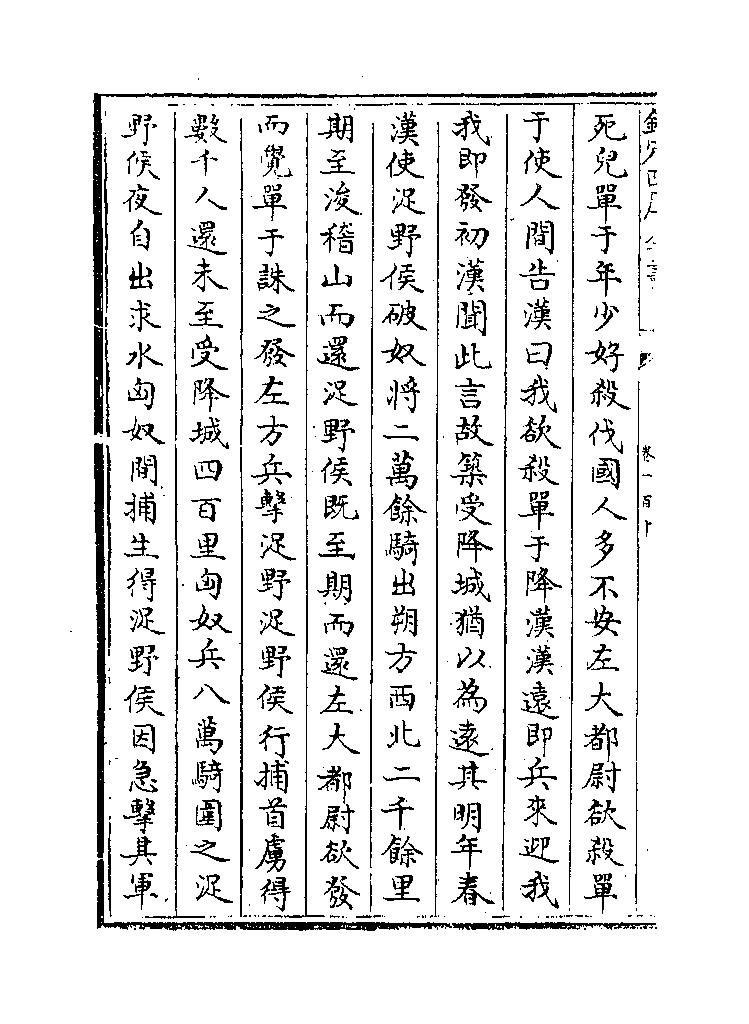 欽定四庫全書
卷一百十
死兒單于年少好殺伐國人多不安左大都尉欲殺單
于使人間告漢曰我欲殺單于降漢漢遠即兵來迎我
我即發初漢聞此言故築受降城猶以為遠其明年春
漢使浞野侯破奴將二萬餘騎出朔方西北二千餘里
期至浚稽山而還浞野侯既至期而還左大都尉欲發
而覺單于誅之發左方兵擊浞野浞野侯行捕首虜得
數千人還未至受降城四百里匈奴兵八萬騎圍之浞
野侯夜自出求水匈奴間捕生得浞野侯因急擊其軍